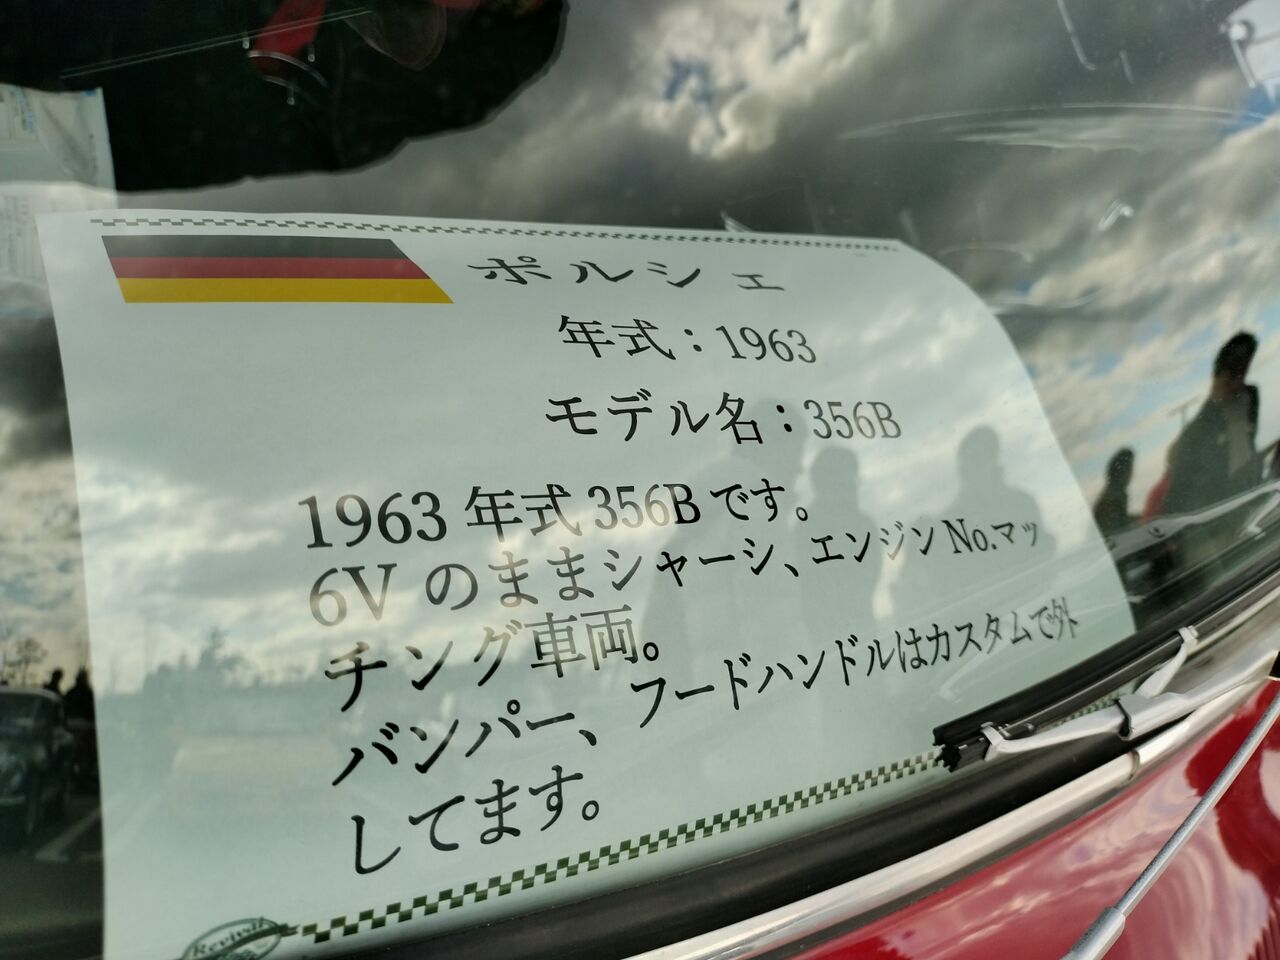 ポルシェ
年式：1963
モデル名：356B
1963 年式 356B です。
6V のままシャーシ、エンジン No.マッ
チング車両。
バンパー、フードハンドルはカスタムで外
してます。
Revival